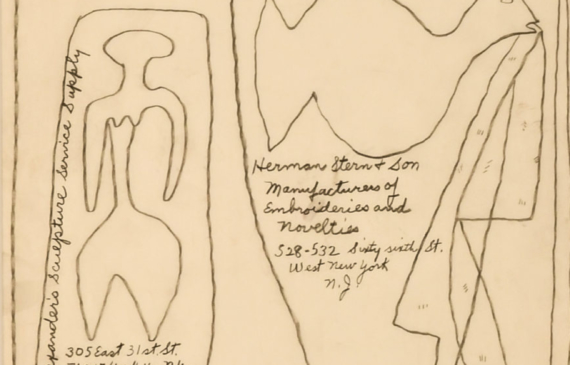 Sculpture Service Supply
305 East 31st. St.
Herman Stern & Son
Manufacturers of
Embroideries and
Novelties
528-532 Sixty sixth St.
West New York
N.J.